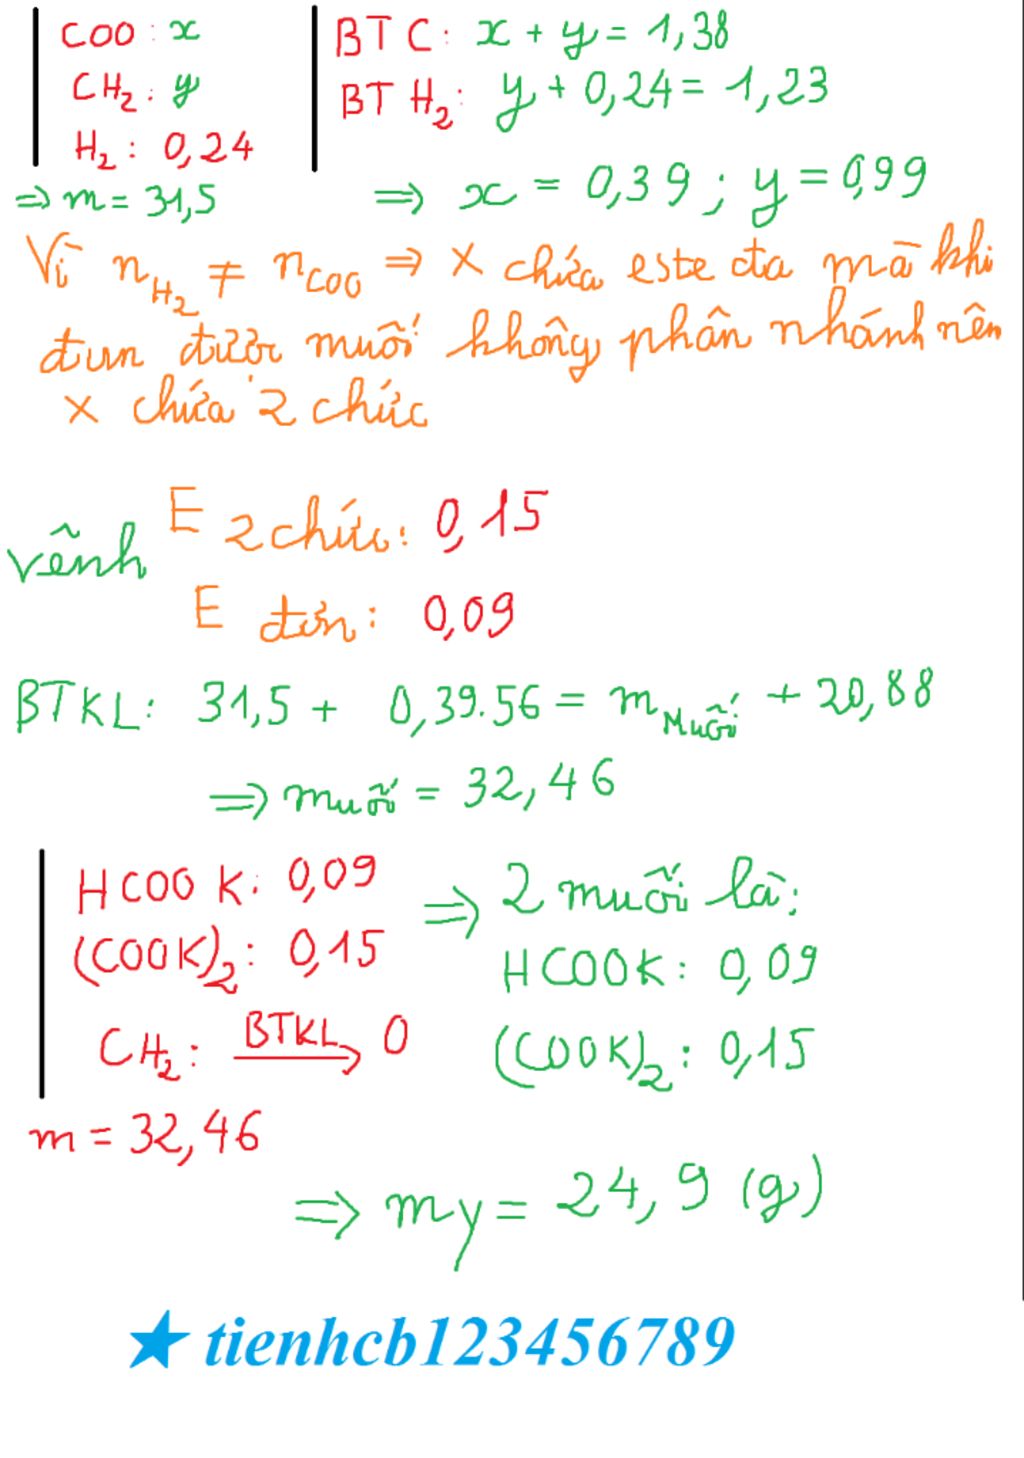 COO: x
CH₂: y
H₂: 0,24
⇒ m = 31,5
BTC: x + y = 1,38
BT H₂: y + 0,24 = 1,23
⇒ x = 0,39 ; y = 0,99
Vì nH₂ ≠ nCOO ⇒ X chứa este đa mà khi
đun được muối không phân nhánh nên
X chứa 2 chức
vênh
E 2 chức: 0,15
E đơn: 0,09
BTKL: 31,5 + 0,39.56 = mMuối + 20,88
⇒ muối = 32,46
HCOOK: 0,09
(COOK)₂: 0,15
CH₂: BTKL → 0
m = 32,46
⇒ 2 muối là:
HCOOK: 0,09
(COOK)₂: 0,15
⇒ my = 24,9 (g)
★ tienhcb123456789